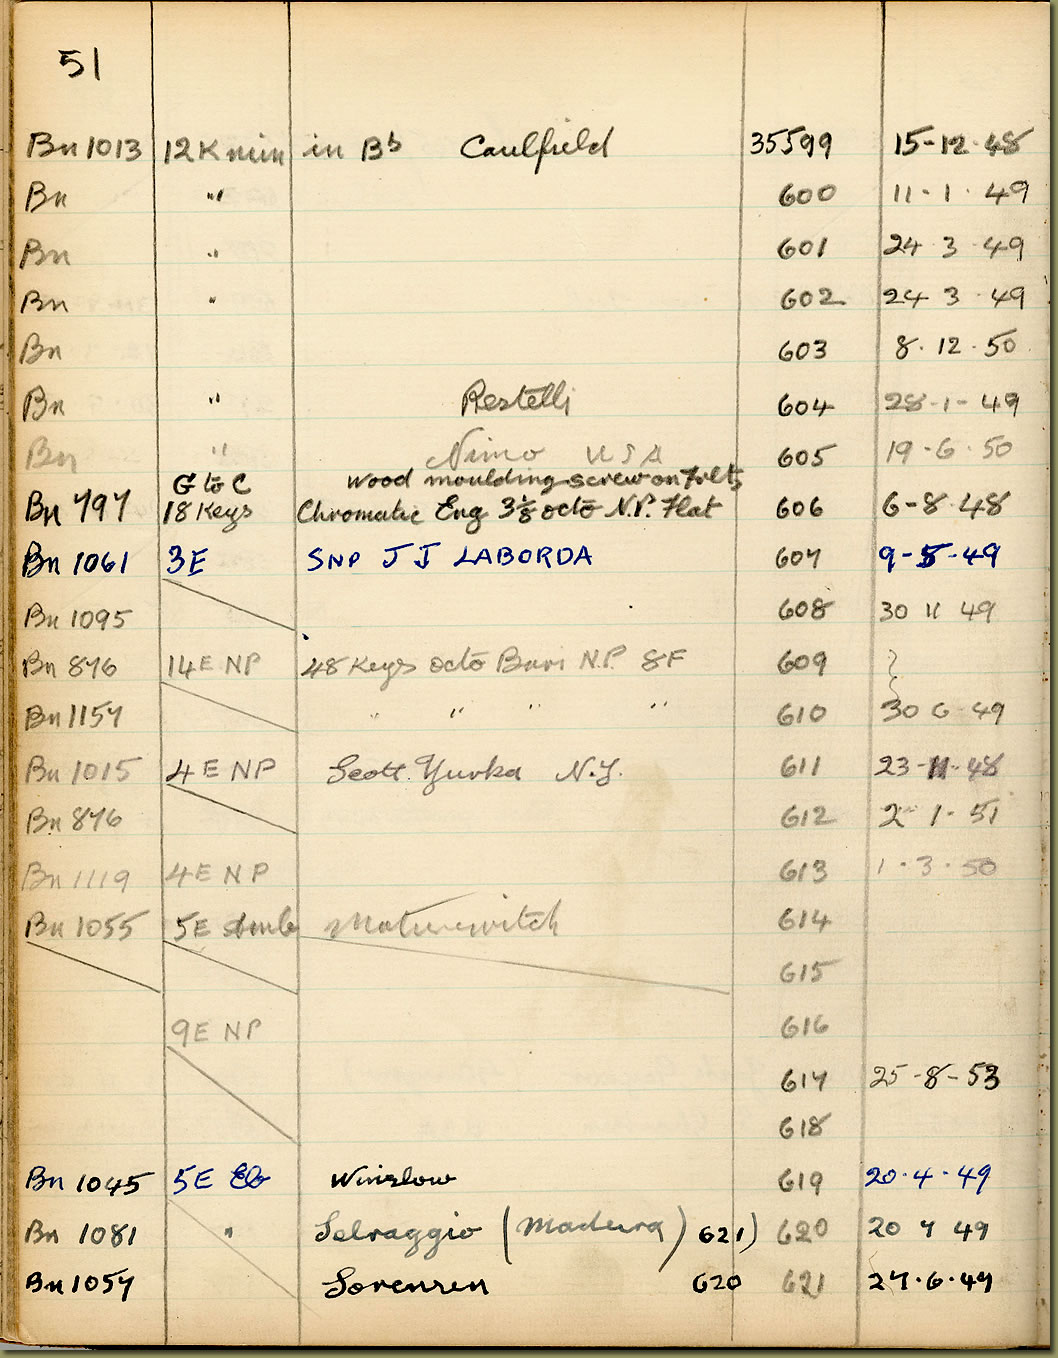 51
Bn 1013 12K min in Bb Caulfield 35599 15-12-48
Bn " 600 11-1-49
Bn " 601 24 3 49
Bn " 602 24 3 49
Bn 603 8.12.50
Bn " Restelli 604 28-1-49
Bn " Nimo USA 605 19-6-50
G to C wood moulding screw on
Bn 797 18 Keys Chromatic Eng 3⅛ octo N.P. Flat 606 6-8-48
Bn 1061 3E SNP J J LABORDA 607 9-5-49
Bn 1095 608 30 11 49
Bn 876 14E NP 48 Keys octo Bari N.P. 8F 609 }
Bn 1157 " " " " 610 30 6 49
Bn 1015 4E NP Scott Yurka N.Y. 611 23-11-48
Bn 876 612 2 1-51
Bn 1119 4E NP 613 1.3.50
Bn 1055 5E 614
615
9E NP 616
617 25-8-53
618
Bn 1045 5E Eb Winslow 619 20.4.49
Bn 1081 " Selvaggio (Madeira) 621) 620 20 7 49
Bn 1057 Sorensen 620 621 27.6.49